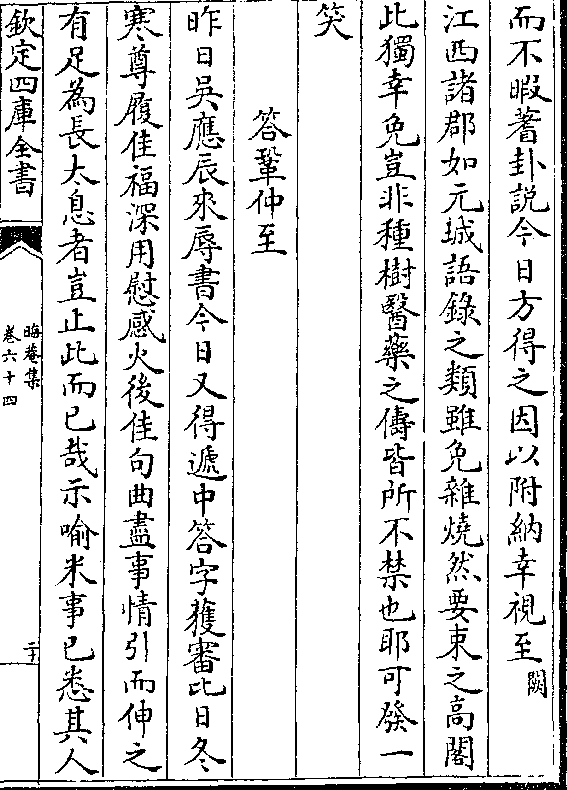 而不暇蓍卦説今日方得之因以附納幸視至闕
江西諸郡如元城語錄之類雖免雜燒然要束之高閣
此獨幸免豈非種樹醫藥之儔皆所不禁也耶可發一
笑
答鞏仲至
昨日吳應辰來辱書今日又得遞中答字獲審比日冬
寒尊履佳福深用慰感火後佳句曲盡事情引而伸之
有足為長太息者豈止此而已哉示喻米事已悉其人
欽定四庫全書
晦菴集
卷六十四
二十